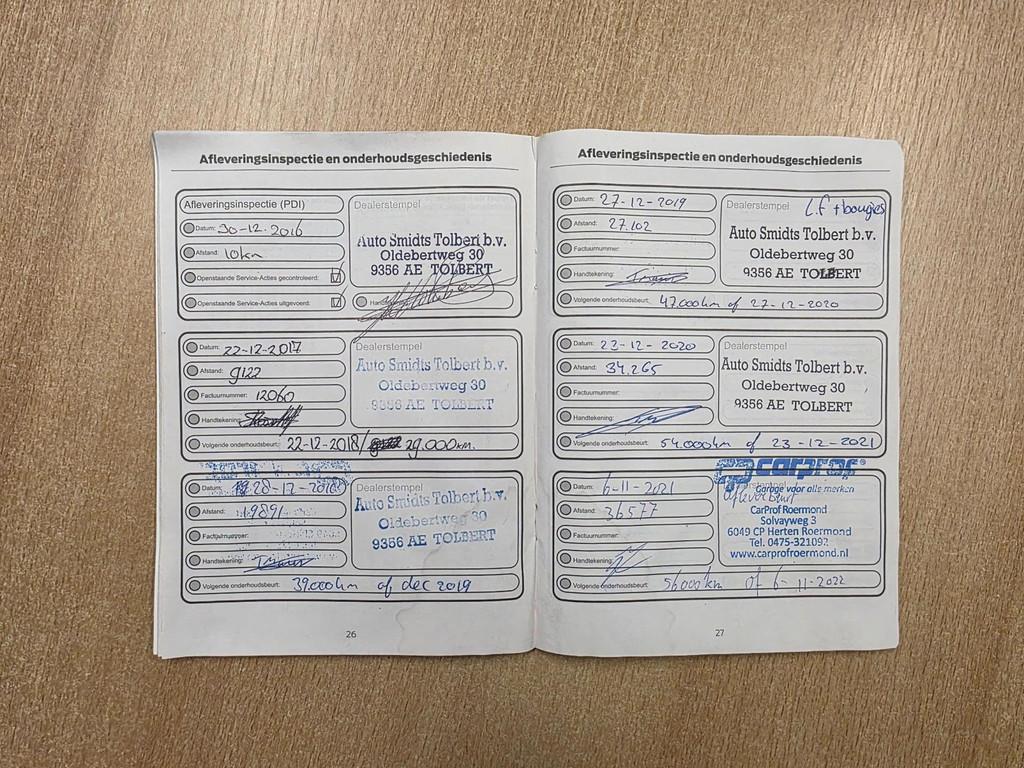 Afleveringsinspectie en onderhoudsgeschiedenis
Afleveringsinspectie (PDI)
Datum: 30-12-2016
Afstand: 10km
Openstaande Service-Acties gecontroleerd:
Openstaande Service-Acties uitgevoerd:
Dealerstempel
Auto Smidts Tolbert b.v.
Oldebertweg 30
9356 AE TOLBERT
Datum: 22-12-2017
Afstand: 9122
Factuurnummer: 12060
Handtekening:
Dealerstempel
Auto Smidts Tolbert b.v.
Oldebertweg 30
9356 AE TOLBERT
Volgende onderhoudsbeurt: 22-12-2018/ 29.000km.
Datum: 28-12-2018
Afstand: 19891
Factuurnummer:
Handtekening:
Dealerstempel
Auto Smidts Tolbert b.v.
Oldebertweg 30
9356 AE TOLBERT
Volgende onderhoudsbeurt: 39.000km of dec 2019
26
Afleveringsinspectie en onderhoudsgeschiedenis
Datum: 27-12-2019
Afstand: 27.102
Factuurnummer:
Handtekening:
Dealerstempel L.F + bougies
Auto Smidts Tolbert b.v.
Oldebertweg 30
9356 AE TOLBERT
Volgende onderhoudsbeurt: 47.000km of 27-12-2020
Datum: 23-12-2020
Afstand: 34.265
Factuurnummer:
Handtekening:
Dealerstempel
Auto Smidts Tolbert b.v.
Oldebertweg 30
9356 AE TOLBERT
Volgende onderhoudsbeurt: 54.000km of 23-12-2021
Datum: 6-11-2021
Afstand: 36577
Factuurnummer:
Handtekening:
carprof®
Garage voor alle merken
Dealerstempel
CarProf Roermond
Solvayweg 3
6049 CP Herten Roermond
Tel. 0475-321092
www.carprofroermond.nl
Volgende onderhoudsbeurt: 56000km of 6-11-2022
27